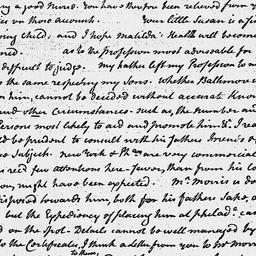 ry a good Nurse. You have then been relieved from y
ies on those accounts. Your little Susan is a fi
oing child, and I hope Matilda's Health will become
ned. as to the Profession most advisable for
difficult to judge. My father left my Profession to m
o the same respecting my Sons. Whether Baltimore w
or him, cannot be decided without accurate Know
and other Circumstances such as, the number and
Persons most likely to aid and promote him &c. I rea
ld be prudent to consult with his Father's Friends o
is Subject. New York & Pha are very commercial
u recd few attentions here - fewer, than from his Co
ion, might have been expected. Mr Morris is do
isposed towards him, both for his Father's Sake, a
but the Expediency of placing him at philada. can
ed on the Spot - Details cannot be well managed by
to the Certificates, I think a Letter from you to Mr Morri
to them,